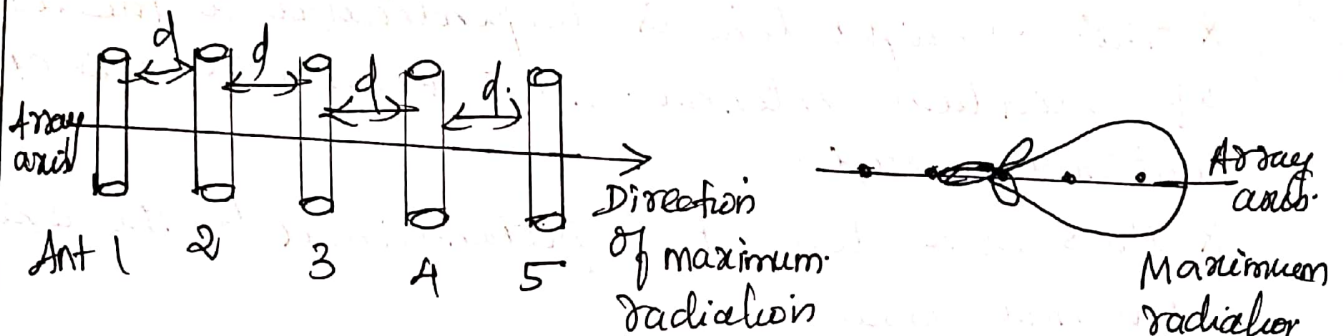 d d d d.
Array
axis
Ant 1 2 3 4 5
Direction
of maximum.
radiation
Array
axis.
Maximum
radiation